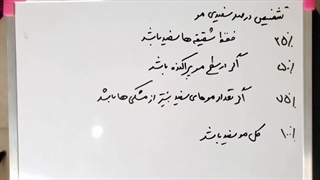 تشخیص درصد سفیدی مو
۲۵٪ فقط شقیقه ها سفید باشد
۵۰٪ اگر در سطح مو پراکنده باشد
۷۵٪ اگر تعداد موهای سفید بیشتر از مشکی ها باشد
۱۰۰٪ کل مو سفید باشد